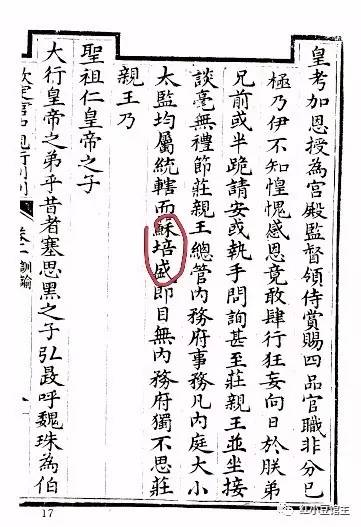 皇考加恩授為宮殿監督領侍賞賜四品官職非分已
極乃伊不知惶愧感恩竟敢肆行狂妄向日於朕弟
兄前或半跪請安或執手問詢甚至莊親王並坐接
談毫無禮節莊親王總管內務府事務凡內庭大小
太監均屬統轄而蘇培盛即目無內務府獨不思莊
親王乃
聖祖仁皇帝之子
大行皇帝之弟乎昔者塞思黑之子弘晸呼魏珠為伯
欽定宮中現行則例 卷一 訓諭
17
红小豆馆王